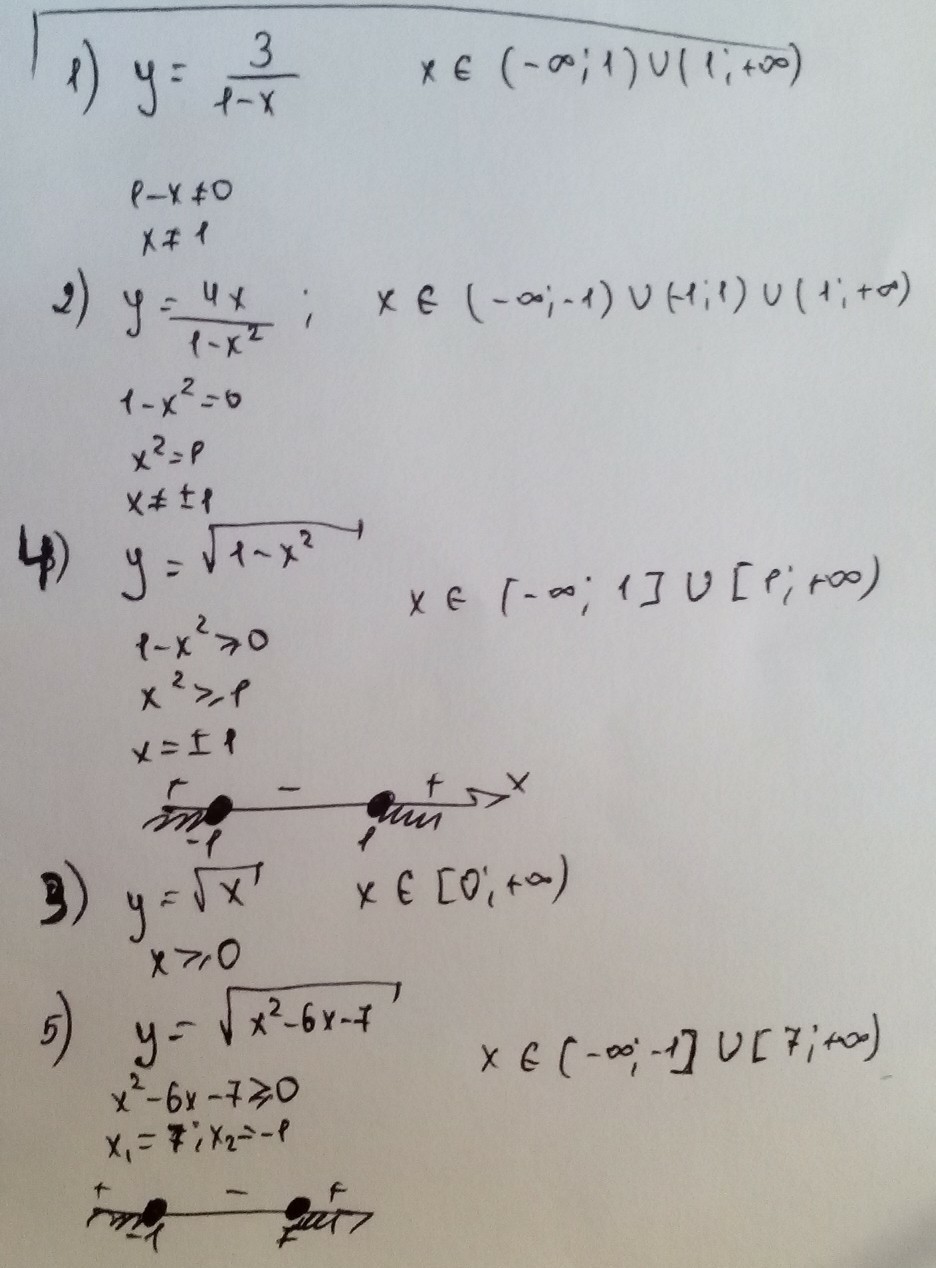 1) y = 3/(1-x) x ∈ (-∞; 1) ∪ (1; +∞)
1-x ≠ 0
x ≠ 1
2) y = 4x/(1-x²) ; x ∈ (-∞; -1) ∪ (-1; 1) ∪ (1; +∞)
1-x² = 0
x² = 1
x ≠ ±1
4) y = √(1-x²) x ∈ [-∞; 1] ∪ [1; +∞)
1-x² ≥ 0
x² ≥ 1
x = ±1
+ - + x
-1 1
3) y = √x x ∈ [0; +∞)
x ≥ 0
5) y = √(x²-6x-7) x ∈ (-∞; -1] ∪ [7; +∞)
x²-6x-7 ≥ 0
x₁ = 7; x₂ = -1
+ - +
-1 7